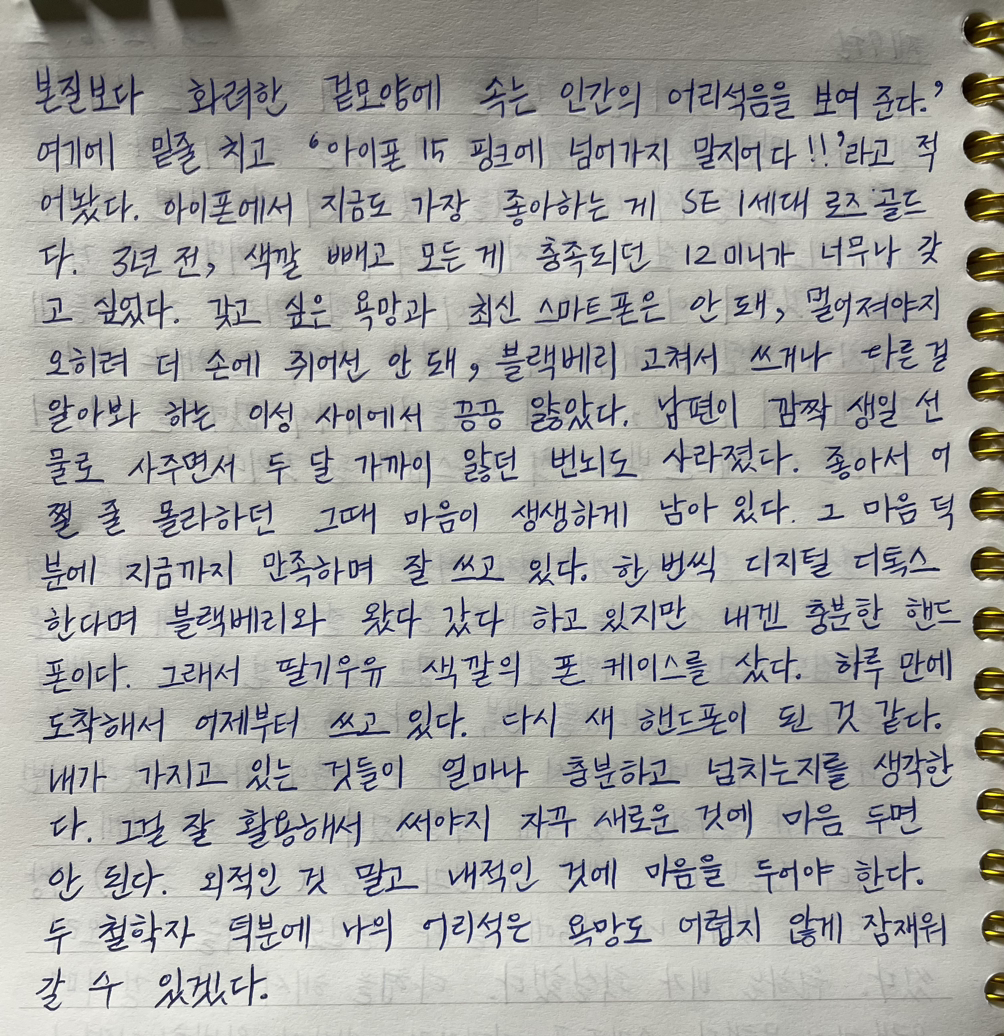 본질보다 화려한 겉모양에 속는 인간의 어리석음을 보여 준다.’
여기에 밑줄 치고 ‘아이폰 15 핑크에 넘어가지 말지어다!!’라고 적
어놨다. 아이폰에서 지금도 가장 좋아하는 게 SE 1세대 로즈골드
다. 3년 전, 색깔 빼고 모든 게 충족되던 12미니가 너무나 갖
고 싶었다. 갖고 싶은 욕망과 최신 스마트폰은 안 돼, 멀어져야지
오히려 더 손에 쥐어선 안 돼, 블랙베리 고쳐서 쓰거나 다른 걸
알아봐 하는 이성 사이에서 끙끙 앓았다. 남편이 깜짝 생일 선
물로 사주면서 두 달 가까이 앓던 번뇌도 사라졌다. 좋아서 어
쩔 줄 몰라하던 그때 마음이 생생하게 남아 있다. 그 마음 덕
분에 지금까지 만족하며 잘 쓰고 있다. 한 번씩 디지털 디톡스
한다며 블랙베리와 왔다 갔다 하고 있지만 내겐 충분한 핸드
폰이다. 그래서 딸기우유 색깔의 폰 케이스를 샀다. 하루 만에
도착해서 어제부터 쓰고 있다. 다시 새 핸드폰이 된 것 같다.
내가 가지고 있는 것들이 얼마나 충분하고 넘치는지를 생각한
다. 그걸 잘 활용해서 써야지 자꾸 새로운 것에 마음 두면
안 된다. 외적인 것 말고 내적인 것에 마음을 두어야 한다.
두 철학자 덕분에 나의 어리석은 욕망도 어렵지 않게 잠재워
갈 수 있겠다.